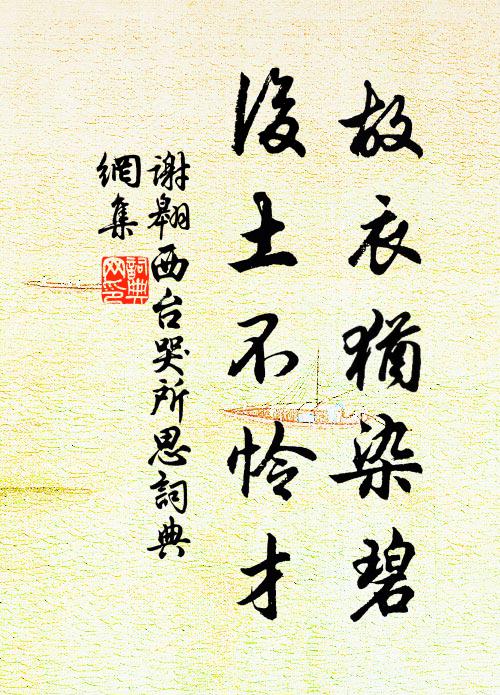 故衣猶染碧
後土不憐才
謝翱西台哭所思詞典
網集
詞典網印